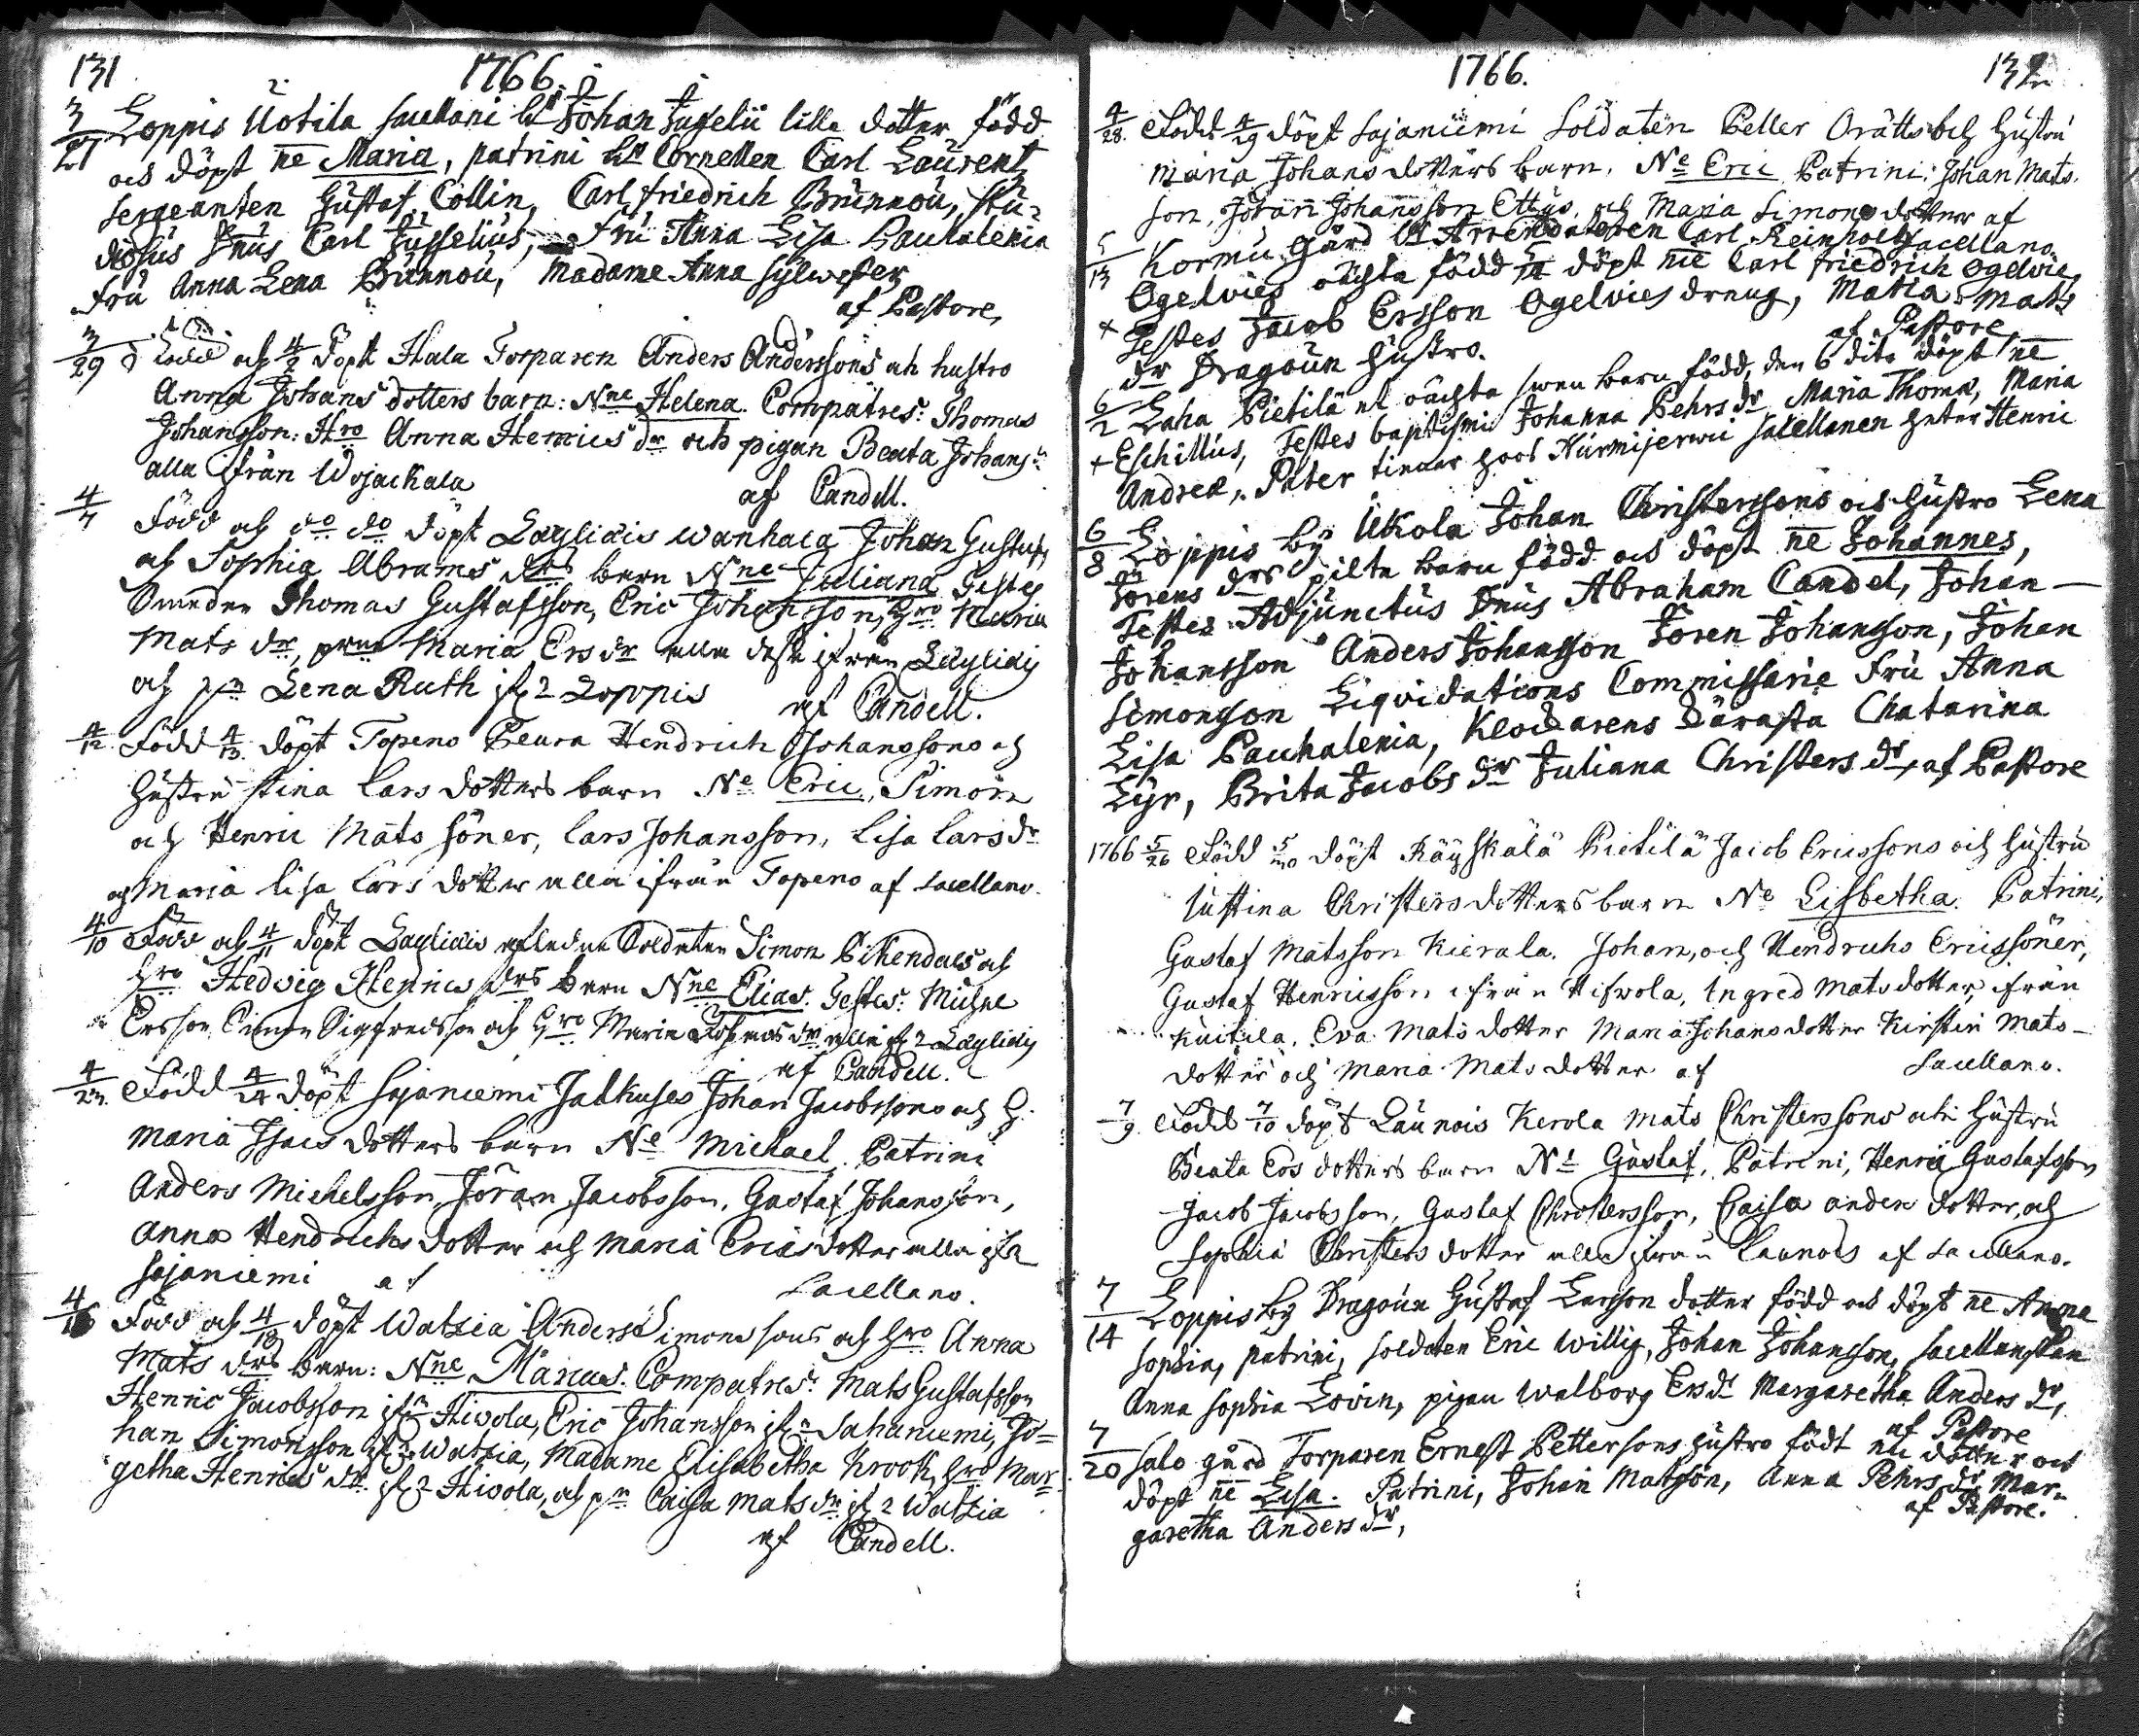 131
1766.
3/27 Loppis Uotila sacellani hr Johan Juselii lilla dotter född
och döpt ne Maria, patrini hr Cornetten Carl Laurent,
sergeanten Gustaf Collin, Carl friedrich Brunnou, stu-
diosus Dnus Carl Jusselius, fru Anna Lisa Pauhalenia
fru Anna Lena Brunnou, Madame Anna Sylwester
af Pastore,
3/29 Född och 4/2 döpt Hala Torparen Anders Anderssons och hustro
Anna Johans dotters barn: Nne Helena. Compatres: Thomas
Johansson: Hro Anna Henrics dr och pigan Beata Johans
alla ifrån Wojackala
af Candell.
4/7 Född och do do döpt Läylidis Wanhala Johan Gustafs
och Sophia Abrams drs barn Nne Juliana Testes
Smeden Thomas Gustafsson, Eric Johansson, Hro Maria
Mats dr, Maria Ers dr alla desse ifrån Läylidis
och pn Lena Ruth ifr Loppis af Candell.
4/12 Född 4/13 döpt Topeno Peura Hendrich Johanssons och
hustru Stina Lars dotters barn Ne Eric, Simon
och Henric Mats söner, Lars Johansson, Lisa Lars dr
och Maria Lisa Lars dotter alla ifrån Topeno af Sacellano.
4/10 Född och 4/11 döpt Läylidis afledne Soldaten Simon Pikendaes och
hro Hedvig Henrics drs barn Nne Elias. Testes: Michel
Ersson Simon Sigfredsson och hro Maria dr alla ifr Läylidis
af Candell.
4/23 Född 4/24 döpt Sajaniemi Jalkuses Johan Jacobssons och H.
Maria Isacs dotters barn Ne Michael. Patrini
Anders Michelsson, Jöran Jacobsson, Gustaf Johansson,
Anna Hendrichs dotter och Maria Erics dotter alla ifr
Sajaniemi af Sacellano.
4/16 Född och 4/18 döpt Watsia Anders Simonssons och hro Anna
Mats drs barn: Nne Marcus. Compatres: Mats Gustafsson
Henric Jacobsson ifr Hivola, Eric Johansson ifr Sahaniemi, Jo=
han Simonsson ifr Watsia, Madame Elisabetha Krook, hro Mar=
getha Henrics dr ifr Hivola, och pn Caisa Mats dr ifr Watsia
af Candell.
1766.
132
4/28. Född 4/29 döpt Sajaniemi Soldaten Petter Orätts och hustru
Maria Johans dotters barn. Ne Eric Patrini: Johan Mats-
son, Johan Johansson Ettus, och Maria Simons dotter af
Sacellano.
5/13 Kormu gård hr Arrendatoren Carl Reinhold
Ogelvies oächta född 5/14 döpt ne Carl friedrich Ogelvie,
+ Testes Jacob Ersson Ogelvies dreng, Maria Mats
dr Dragoun hustro. af Pastore
6/2 Laha Pietilä et oächta swen barn född, den 6 dito döpt ne
+ Eschillus, Testes baptismi Johanna Pehrs dr Maria Thomæ, Maria
Andreæ, Pater tienar hoos Nurmijerwi Sacellanen herr Henric
6/8 Loppis by Ukola Johan Christerssons och hustro Lena
Jörens drs pilte barn född och döpt ne Johannes,
Testes Adjunctus Dnus Abraham Candel, Johan
Johansson Anders Johansson Jören Johansson, Johan
Simonsson Liqvidations Commissarie Fru Anna
Lisa Pauhalenia, Klockarens Kärasta Chatarina
Lyr, Brita Jacobs dr Juliana Christers dr, af Pastore
1766 5/26 Född 5/30 döpt Räyskälä Pietilä Jacob Ericssons och hustru
Justina Christers dotters barn Ne Lisbetha. Patrini,
Gustaf Matsson Kierala. Johan, och Hendrichs Ericssöner,
Gustaf Henricsson ifrån Hifwola, Ingred Mats dotter, ifrån
Kuitila, Eva Mats dotter Maria Johans dotter Kirstin Mats-
dotter och Maria Mats dotter af Sacellano.
7/9. Född 7/10 döpt Launois Kerola Mats Christerssons och hustru
Beata Ers dotters barn Ne Gustaf. Patrini, Henric Gustafsson
Jacob Jacobsson, Gustaf Christersson, Caisa anders dotter, och
Sophia Christers dotter alla ifrån Launois af Sacellano.
7/14 Loppis by Dragoun Gustaf Larsson dotter född och döpt ne Anna
Sophia, patrini, soldaten Eric Willig, Johan Johansson, Sacellanskan
Anna Sophia Lovin, pigan Walborg Ers dr Margaretha Anders dr,
af Pastore
7/20 Salo gård Torparen Ernest Pettersons hustro födt en dotter och
döpt ne Lisa. Patrini, Johan Matsson, Anna Pehrs dr Mar-
garetha Anders dr, af Pastore.